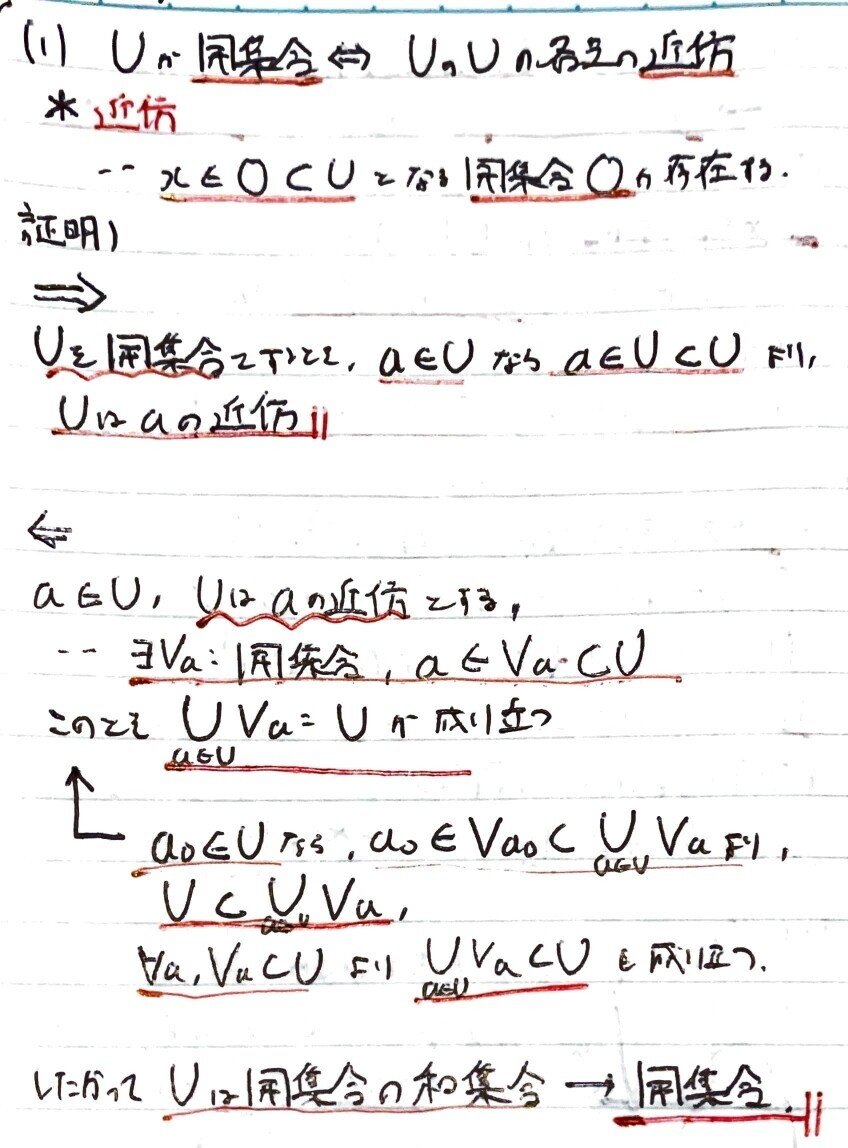 (1) Uが開集合 ⇔ UがUの各点の近傍
* 近傍
-- x ∈ O ⊂ U となる開集合Oが存在する.
証明)
⇒
Uを開集合とすると, a∈U なら a∈U⊂U より,
Uは a の近傍 ||
⇐
a∈U, Uは a の近傍とする,
-- ∃Va: 開集合, a ∈ Va ⊂ U
このとき ⋃_{a∈U} Va = U が成り立つ
a₀∈U なら, a₀ ∈ Va₀ ⊂ ⋃_{a∈U} Va より,
U ⊂ ⋃_{a∈U} Va,
∀a, Va⊂U より ⋃_{a∈U} Va ⊂ U も成り立つ.
したがって Uは開集合の和集合 → 開集合. ||